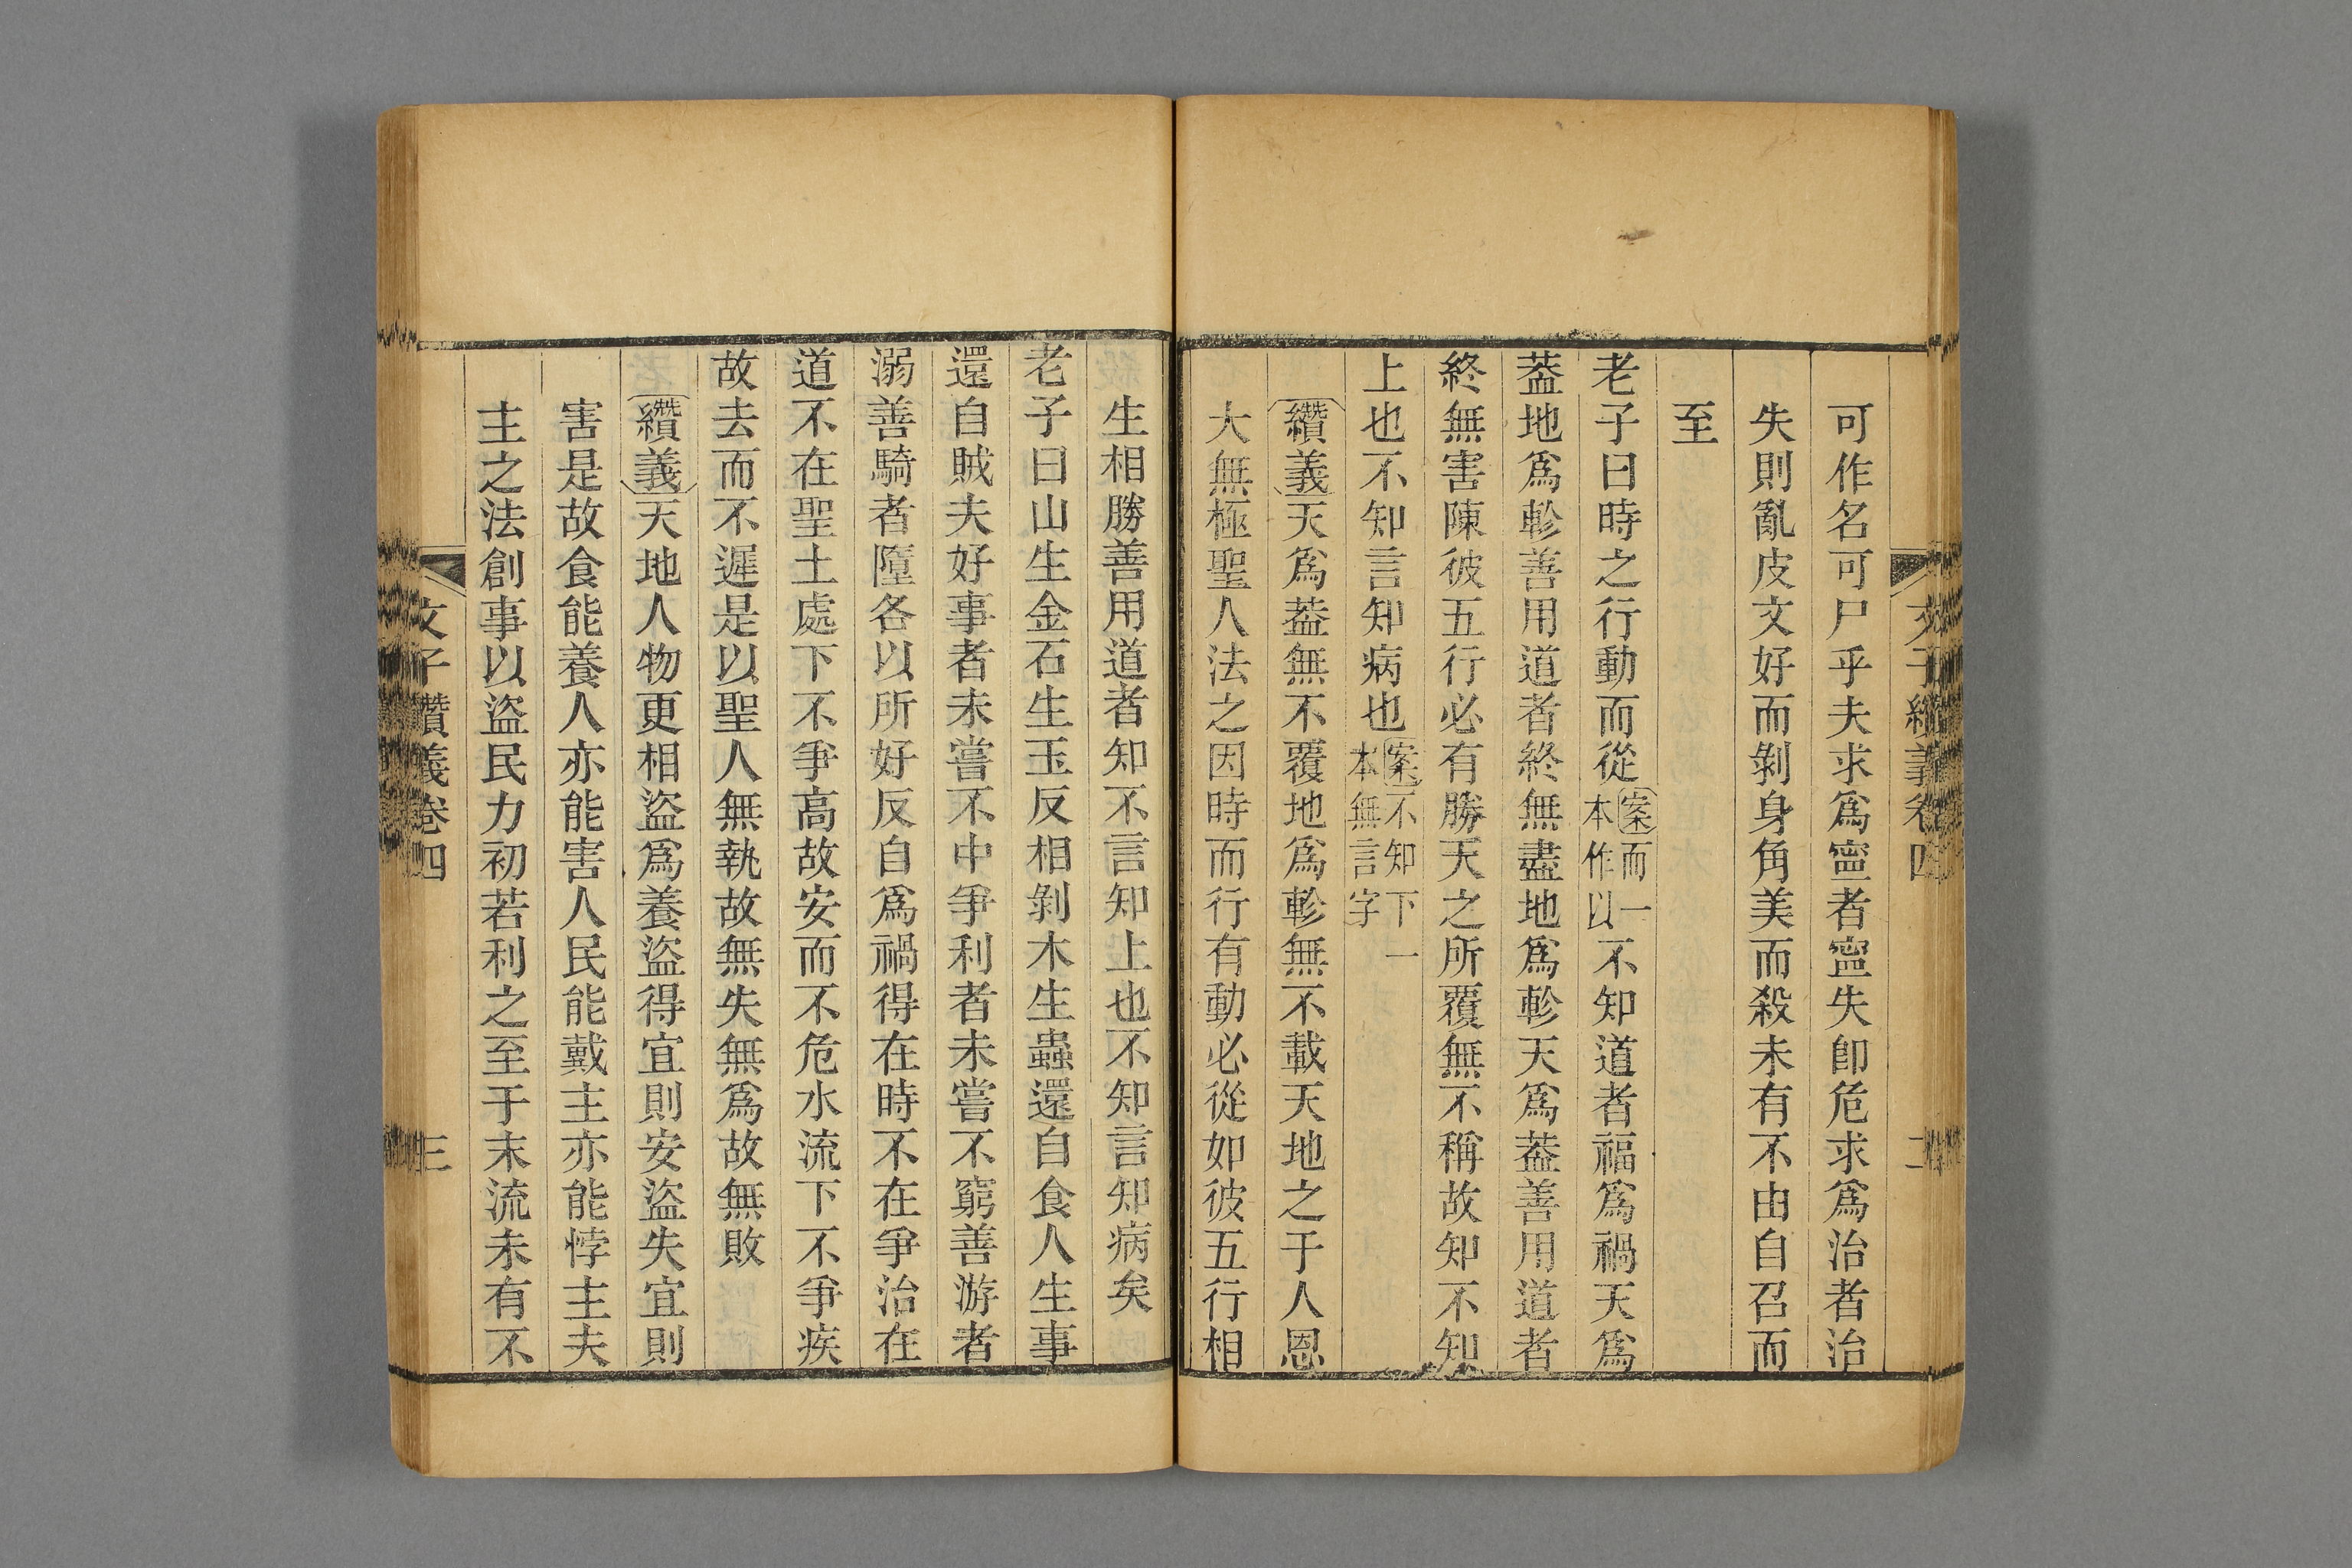 文子纘義卷四 二
可作名可尸乎夫求爲寍者寍失卽危求爲治者治
失則亂皮文好而剝身角美而殺未有不由自召而
至
老子曰時之行動而從案而一本作以不知道者福爲禍天爲
葢地爲軫善用道者終無盡地爲軫天爲葢善用道者
終無害陳彼五行必有勝天之所覆無不稱故知不知
上也不知言知病也案不知下一本無言字
纘義天爲葢無不覆地爲軫無不載天地之于人恩
大無極聖人法之因時而行有動必從如彼五行相
生相勝善用道者知不言知上也不知言知病矣
老子曰山生金石生玉反相剝木生蟲還自食人生事
還自賊夫好事者未嘗不中爭利者未嘗不窮善游者
溺善騎者墮各以所好反自爲禍得在時不在爭治在
道不在聖土處下不爭高故安而不危水流下不爭疾
故去而不遲是以聖人無執故無失無爲故無敗
纘義天地人物更相盜爲養盜得宜則安盜失宜則
害是故食能養人亦能害人民能戴主亦能悖主夫
主之法創事以盜民力初若利之至于末流未有不
文子纘義卷四 三